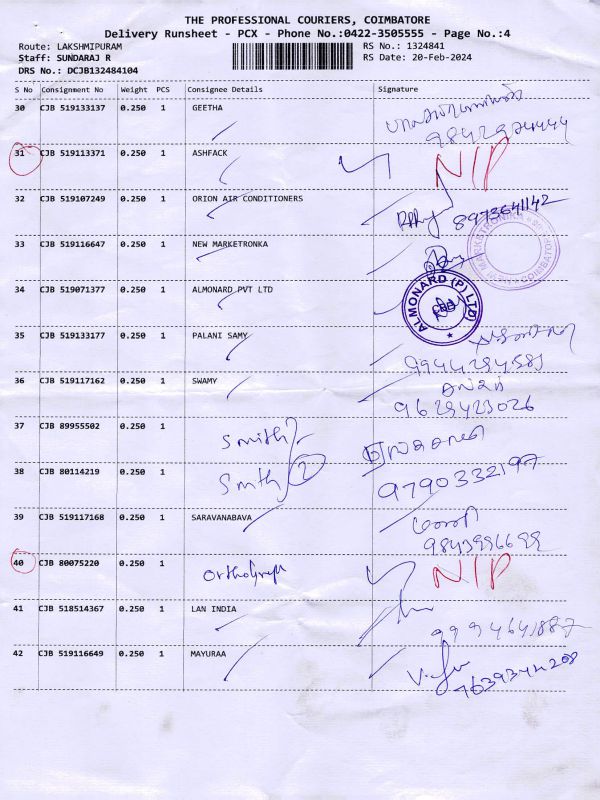 THE PROFESSIONAL COURIERS, COIMBATORE
Delivery Runsheet - PCX - Phone No.:0422-3505555 - Page No.:4
Route: LAKSHMIPURAM RS No.: 1324841
Staff: SUNDARAJ R RS Date: 20-Feb-2024
DRS No.: DCJB132484104
S No Consignment No Weight PCS Consignee Details Signature
30 CJB 519133137 0.250 1 GEETHA
31 CJB 519113371 0.250 1 ASHFACK N/P
32 CJB 519107249 0.250 1 ORION AIR CONDITIONERS 8973641142
33 CJB 519116647 0.250 1 NEW MARKETRONKA
34 CJB 519071377 0.250 1 ALMONARD PVT LTD ALMONARD (P) LTD
35 CJB 519133177 0.250 1 PALANI SAMY
36 CJB 519117162 0.250 1 SWAMY
9629423026
37 CJB 89955502 0.250 1 Smith
38 CJB 80114219 0.250 1 Smith 2 9790332197
39 CJB 519117168 0.250 1 SARAVANABAVA
40 CJB 80075220 0.250 1 Orthograph N/P
41 CJB 518514367 0.250 1 LAN INDIA
9994641887
42 CJB 519116649 0.250 1 MAYURAA